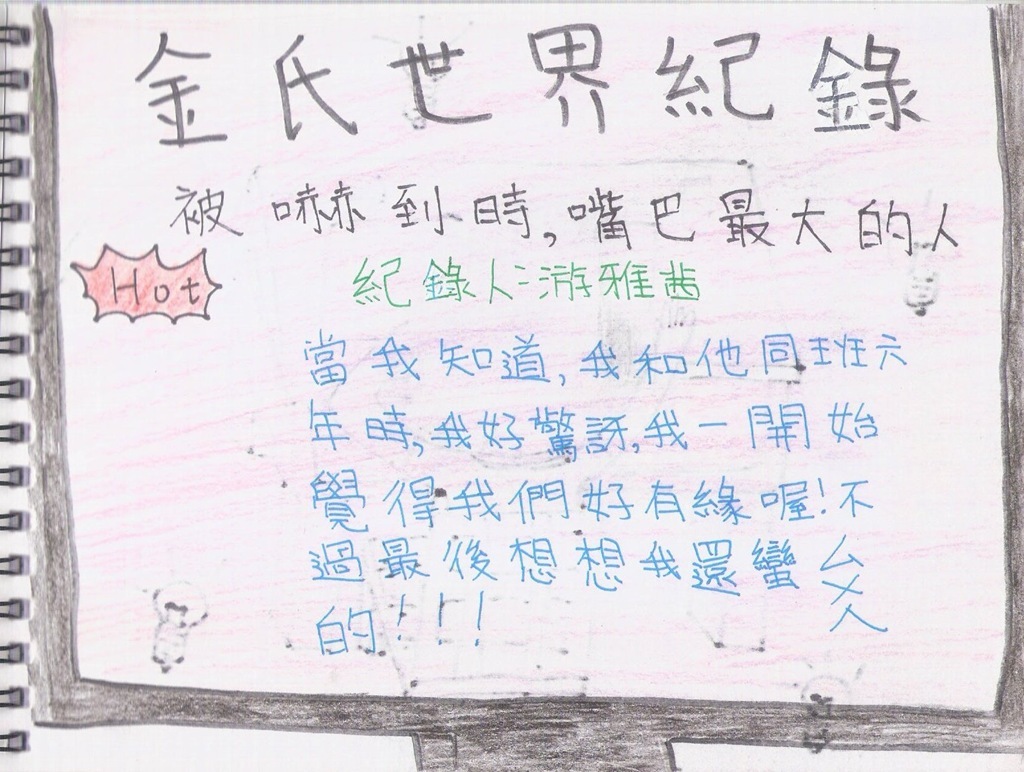 金氏世界紀錄
被嚇到時,嘴巴最大的人
Hot
紀錄人:游雅茜
當我知道,我和他同班六
年時,我好驚訝,我一開始
覺得我們好有緣喔!不
過最後想想我還蠻ㄙㄨㄟ
的!!!